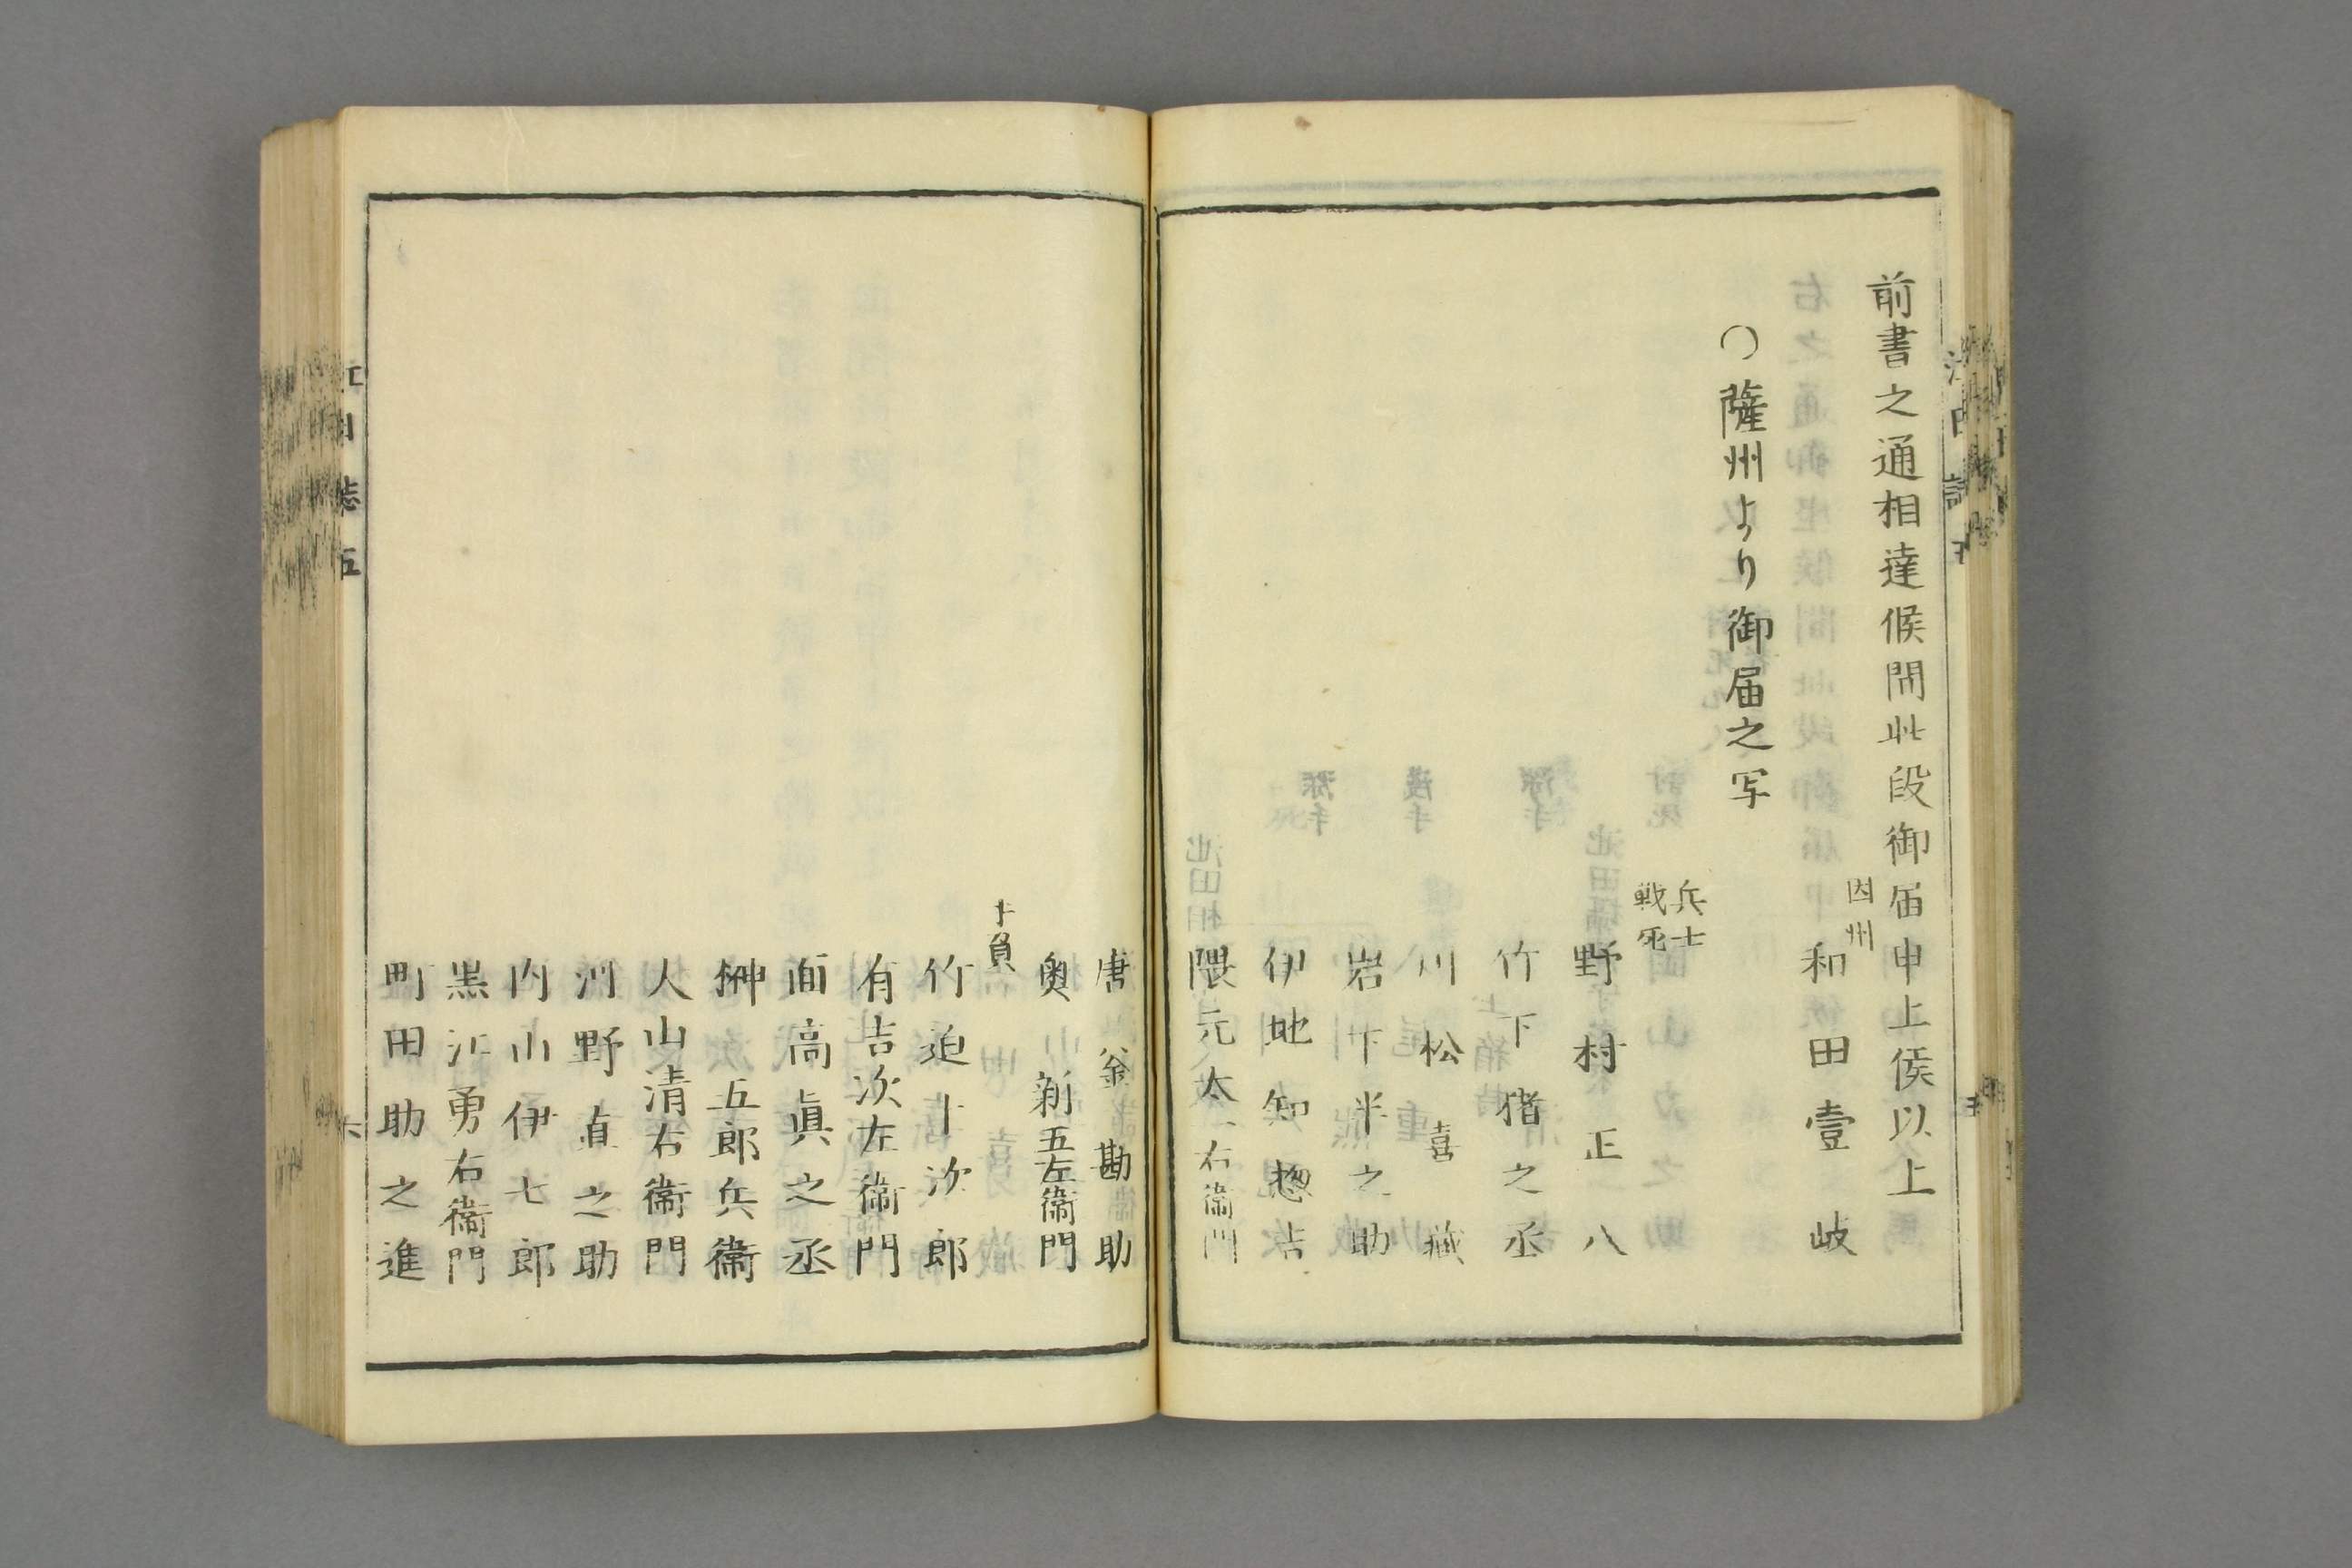 前書之通相達候間此段御届申上候以上
因州
和田壹岐
〇薩州より御届之写
兵士
戦死
野村正八
竹下猪之丞
川松喜藏
岩下半之助
伊地知惣吉
隈元太右衞門
唐翁勘助
奥新五左衞門
手負
竹迫十次郎
有吉次左衞門
面高眞之丞
榊五郎兵衞
人山清右衞門
河野直之助
内山伊七郎
黒江勇右衞門
町田助之進
江日誌五
六